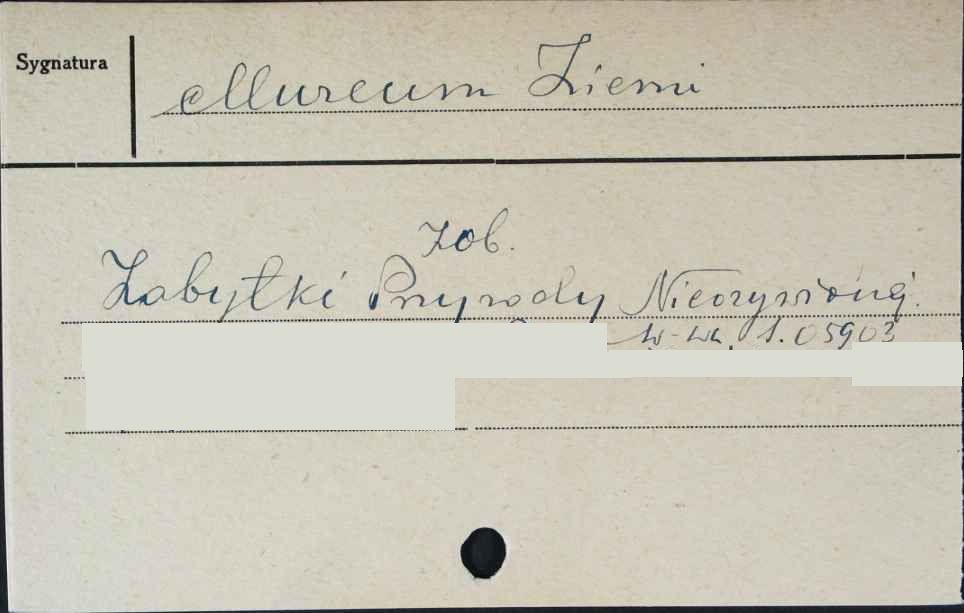 Sygnatura
Muzeum Ziemi
zob.
Zabytki Przyrody Nieożywionej.
W-wa, 1.05903